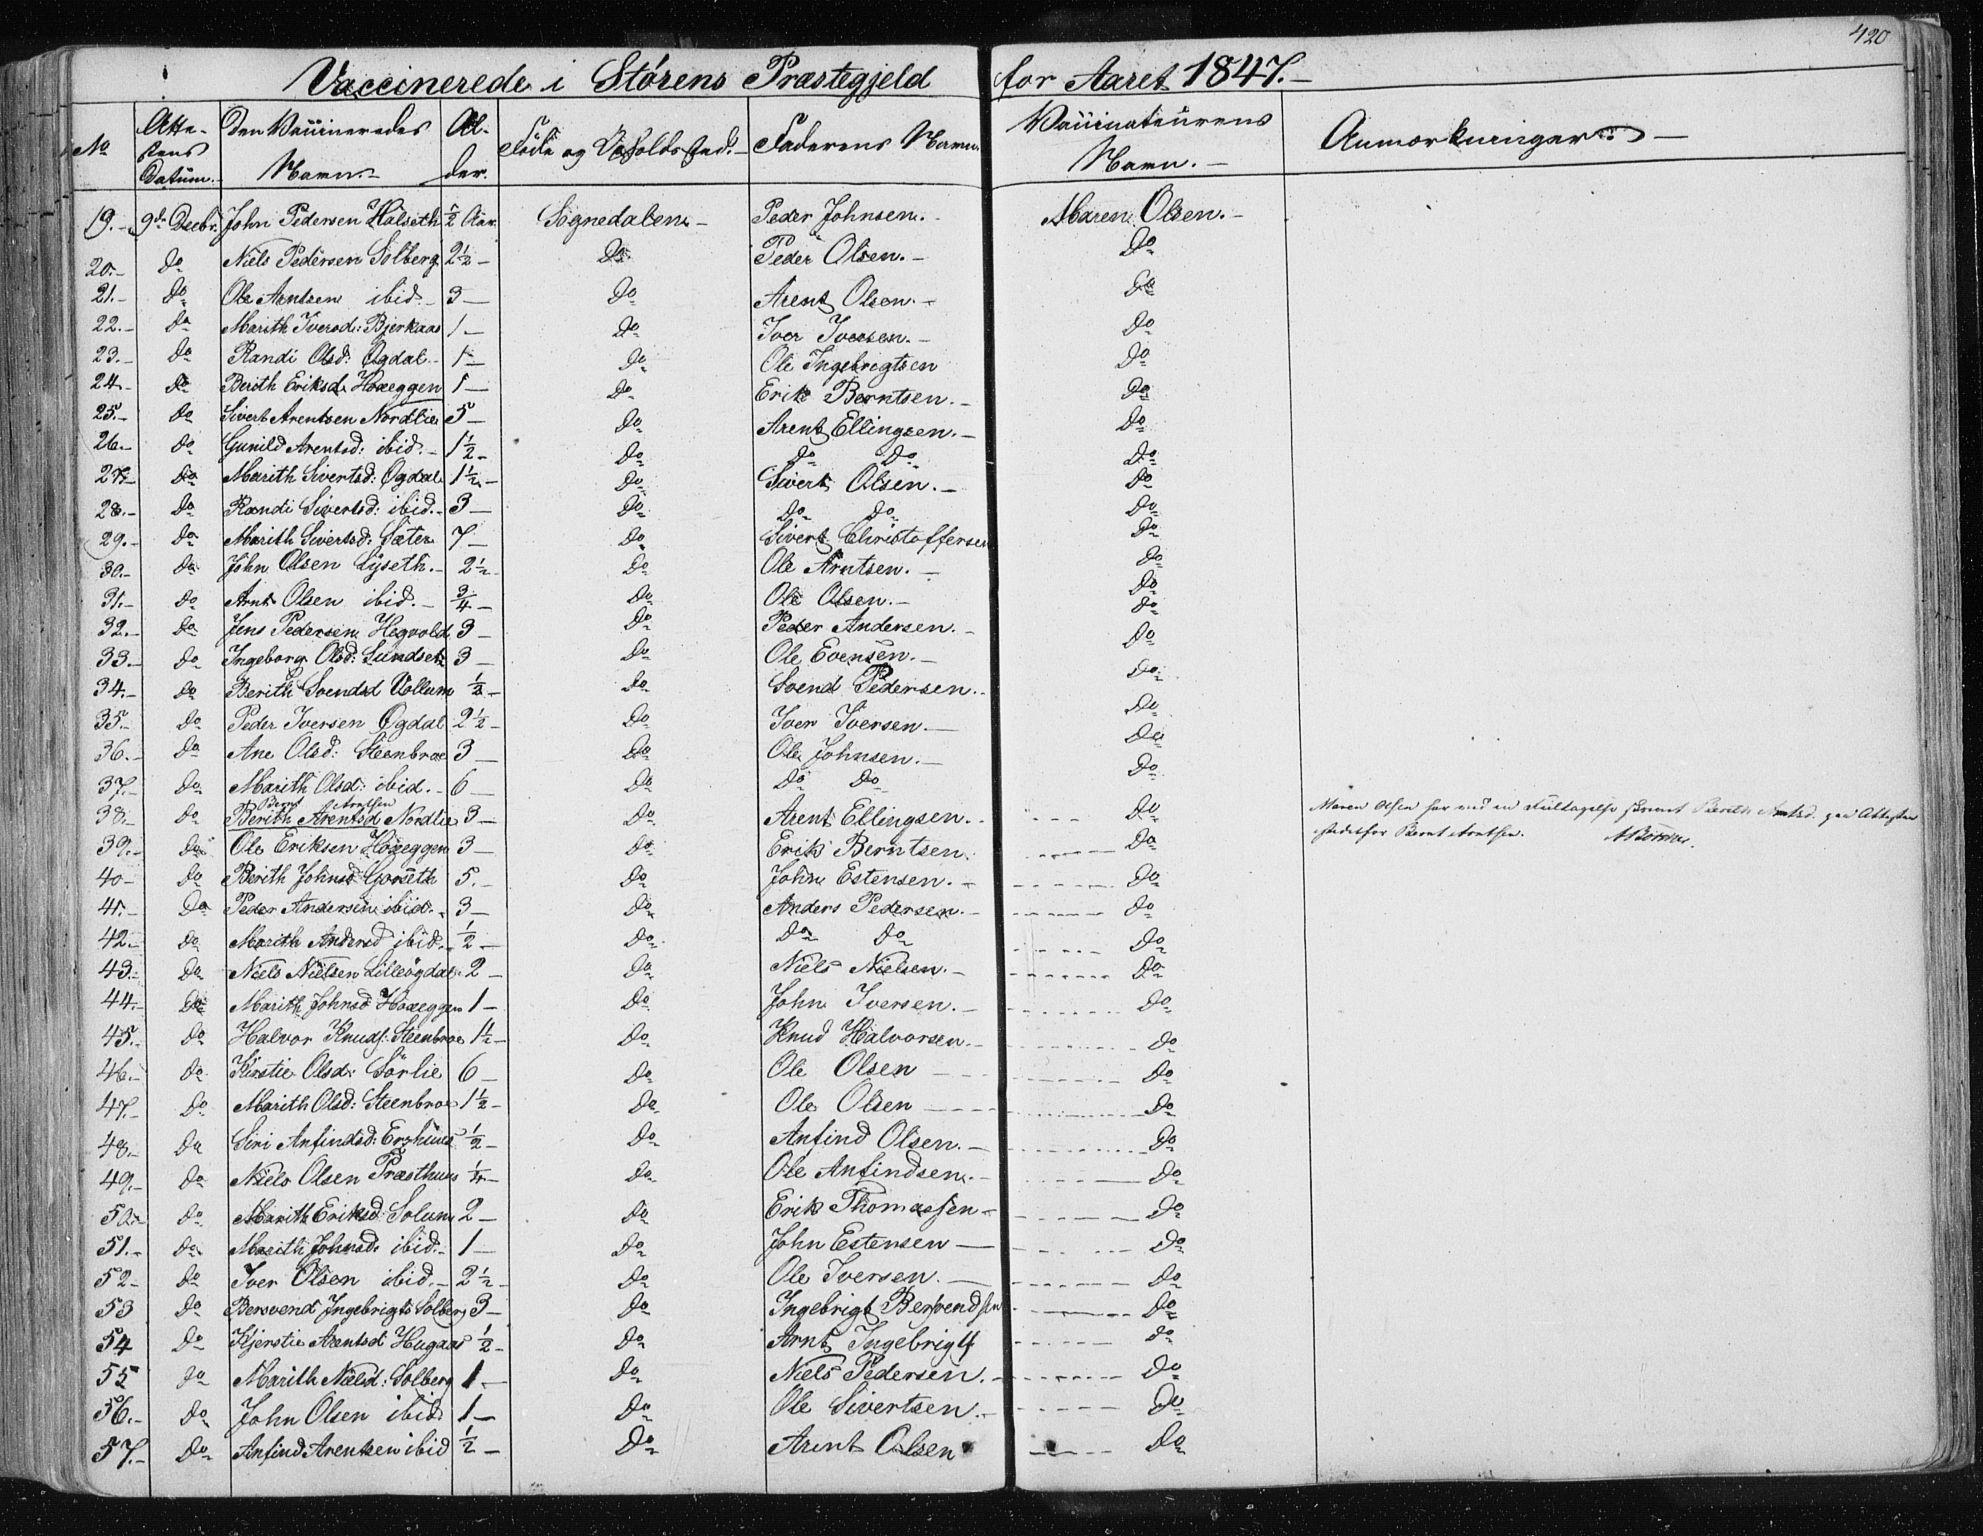 420
Vaccinerede i Störens Præstegjeld for Aaret 1847.-
No | Attestens Datum. | Den Vaccineredes Navn.- | Alder. | Føde og Opholds Sted.- | Faderens Navn. | Vaccinateurens Navn.- | Anmærkninger.-
19.- 9de Decbr. John Pedersen Halseth ½ Aar. Sognedalen.- Peder Johnsen.- Maren Olsen.-
20.- Do Niels Pedersen Solberg 2½- Do Peder Olsen.- Do
21.- Do Ole Arntsen ibid.- 3- Do Arent Olsen.- Do
22.- Do Marith Iversd: Bjerkaas 1.- Do Iver Iversen.- Do
23.- Do Randi Olsd: Ogdal.- 1- Do Ole Ingebrigtsen Do
24.- Do Berith Eriksd. Hoxeggen 1- Do Erik Berntsen.- Do
25.- Do Sivert Arentsen Nordlie 5- Do Arent Ellingsen.- Do
26.- Do Gunild Arentsd: ibid.- 1½- Do Do Do Do
27.- Do Marith Sivertsd: Ogdal 1½- Do Sivert Olsen.- Do
28.- Do Randi Sivertsd: ibid.- 3- Do Do Do Do
29.- Do Marith Sivertsd: Sæter 7- Do Sivert Christoffersen Do
30.- Do John Olsen Lyseth.- 2½- Do Ole Arntsen.- Do
31.- Do Arnt Olsen ibid.- ¾- Do Ole Olsen.- Do
32.- Do Jens Pedersen Hegvold 3- Do Peder Andersen.- Do
33.- Do Ingeborg Olsd: Sundset 3- Do Ole Evensen.- Do
34.- Do Berith Svendsd Vollum ½- Do Svend Pedersen.- Do
35.- Do Peder Iversen Ogdal 2½- Do Iver Iversen.- Do
36.- Do Ane Olsd: Steenbroe 3- Do Ole Johnsen.- Do
37.- Do Marith Olsd: ibid.- 6- Do Do Do Do
Bernt Arntsen
38.- Do Berith Arentsd Nordlie 3- Do Arent Ellingsen.- Do Maren Olsen har ved en Feiltagelse skrevet Berith Arntsd. paa Attesten
istedetfor Bernt Arntsen.
39.- Do Ole Eriksen Hoxeggen 3- Do Erik Berntsen. Do
40- Do Berith Johnsd Gorseth 5.- Do John Estensen.- Do
41.- Do Peder Andersen ibid.- 3- Do Anders Pedersen.- Do
42.- Do Marith Andersd ibid.- ½- Do Do Do Do
43.- Do Niels Nielsen Lilleögdal 2- Do Niels Nielsen.- Do
44.- Do Marith Johnsd Hoxeggen 1- Do John Iversen.- Do
45.- Do Halvor Knuds: Steenbroe 1½- Do Knud Halvorsen.- Do
46.- Do Kirstie Olsd: Sörlie 6- Do Ole Olsen Do
47.- Do Marith Olsd: Steenbroe 1½- Do Ole Olsen Do
48.- Do Siri Anfindsd: Enghuus ½- Do Anfind Olsen.- Do
49.- Do Niels Olsen Præsthuus ¼- Do Ole Anfindsen.- Do
50.- Do Marith Eriksd: Solum 2- Do Erik Thomassen- Do
51.- Do Marith Johnsd. ibid.- 1- Do John Estensen- Do
52- Do Iver Olsen ibid.- 2½- Do Ole Iversen.- Do
53 Do Bersvend Ingebrigts Solberg 3- Do Ingebrigt Bersvendsen Do
54 Do Kjerstie Arentsd Hugaas ½- Do Arnt Ingebrigts Do
55 Do Marith Nielsd: Solberg 1- Do Niels Pedersen.- Do
56.- Do John Olsen ibid 1- Do Ole Sivertsen.- Do
57.- Do Anfind Arentsen ibid ½- Do Arent Olsen Do